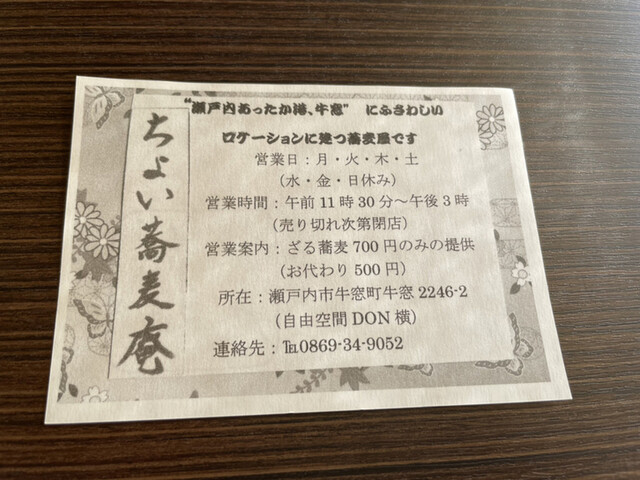 "瀬戸内あったか港、牛窓" にふさわしい
ロケーションに建つ蕎麦屋です
ちょい蕎麦庵
営業日：月・火・木・土
（水・金・日休み）
営業時間：午前11時30分～午後3時
（売り切れ次第閉店）
営業案内：ざる蕎麦700円のみの提供
（お代わり500円）
所在：瀬戸内市牛窓町牛窓2246-2
（自由空間DON横）
連絡先：℡0869-34-9052